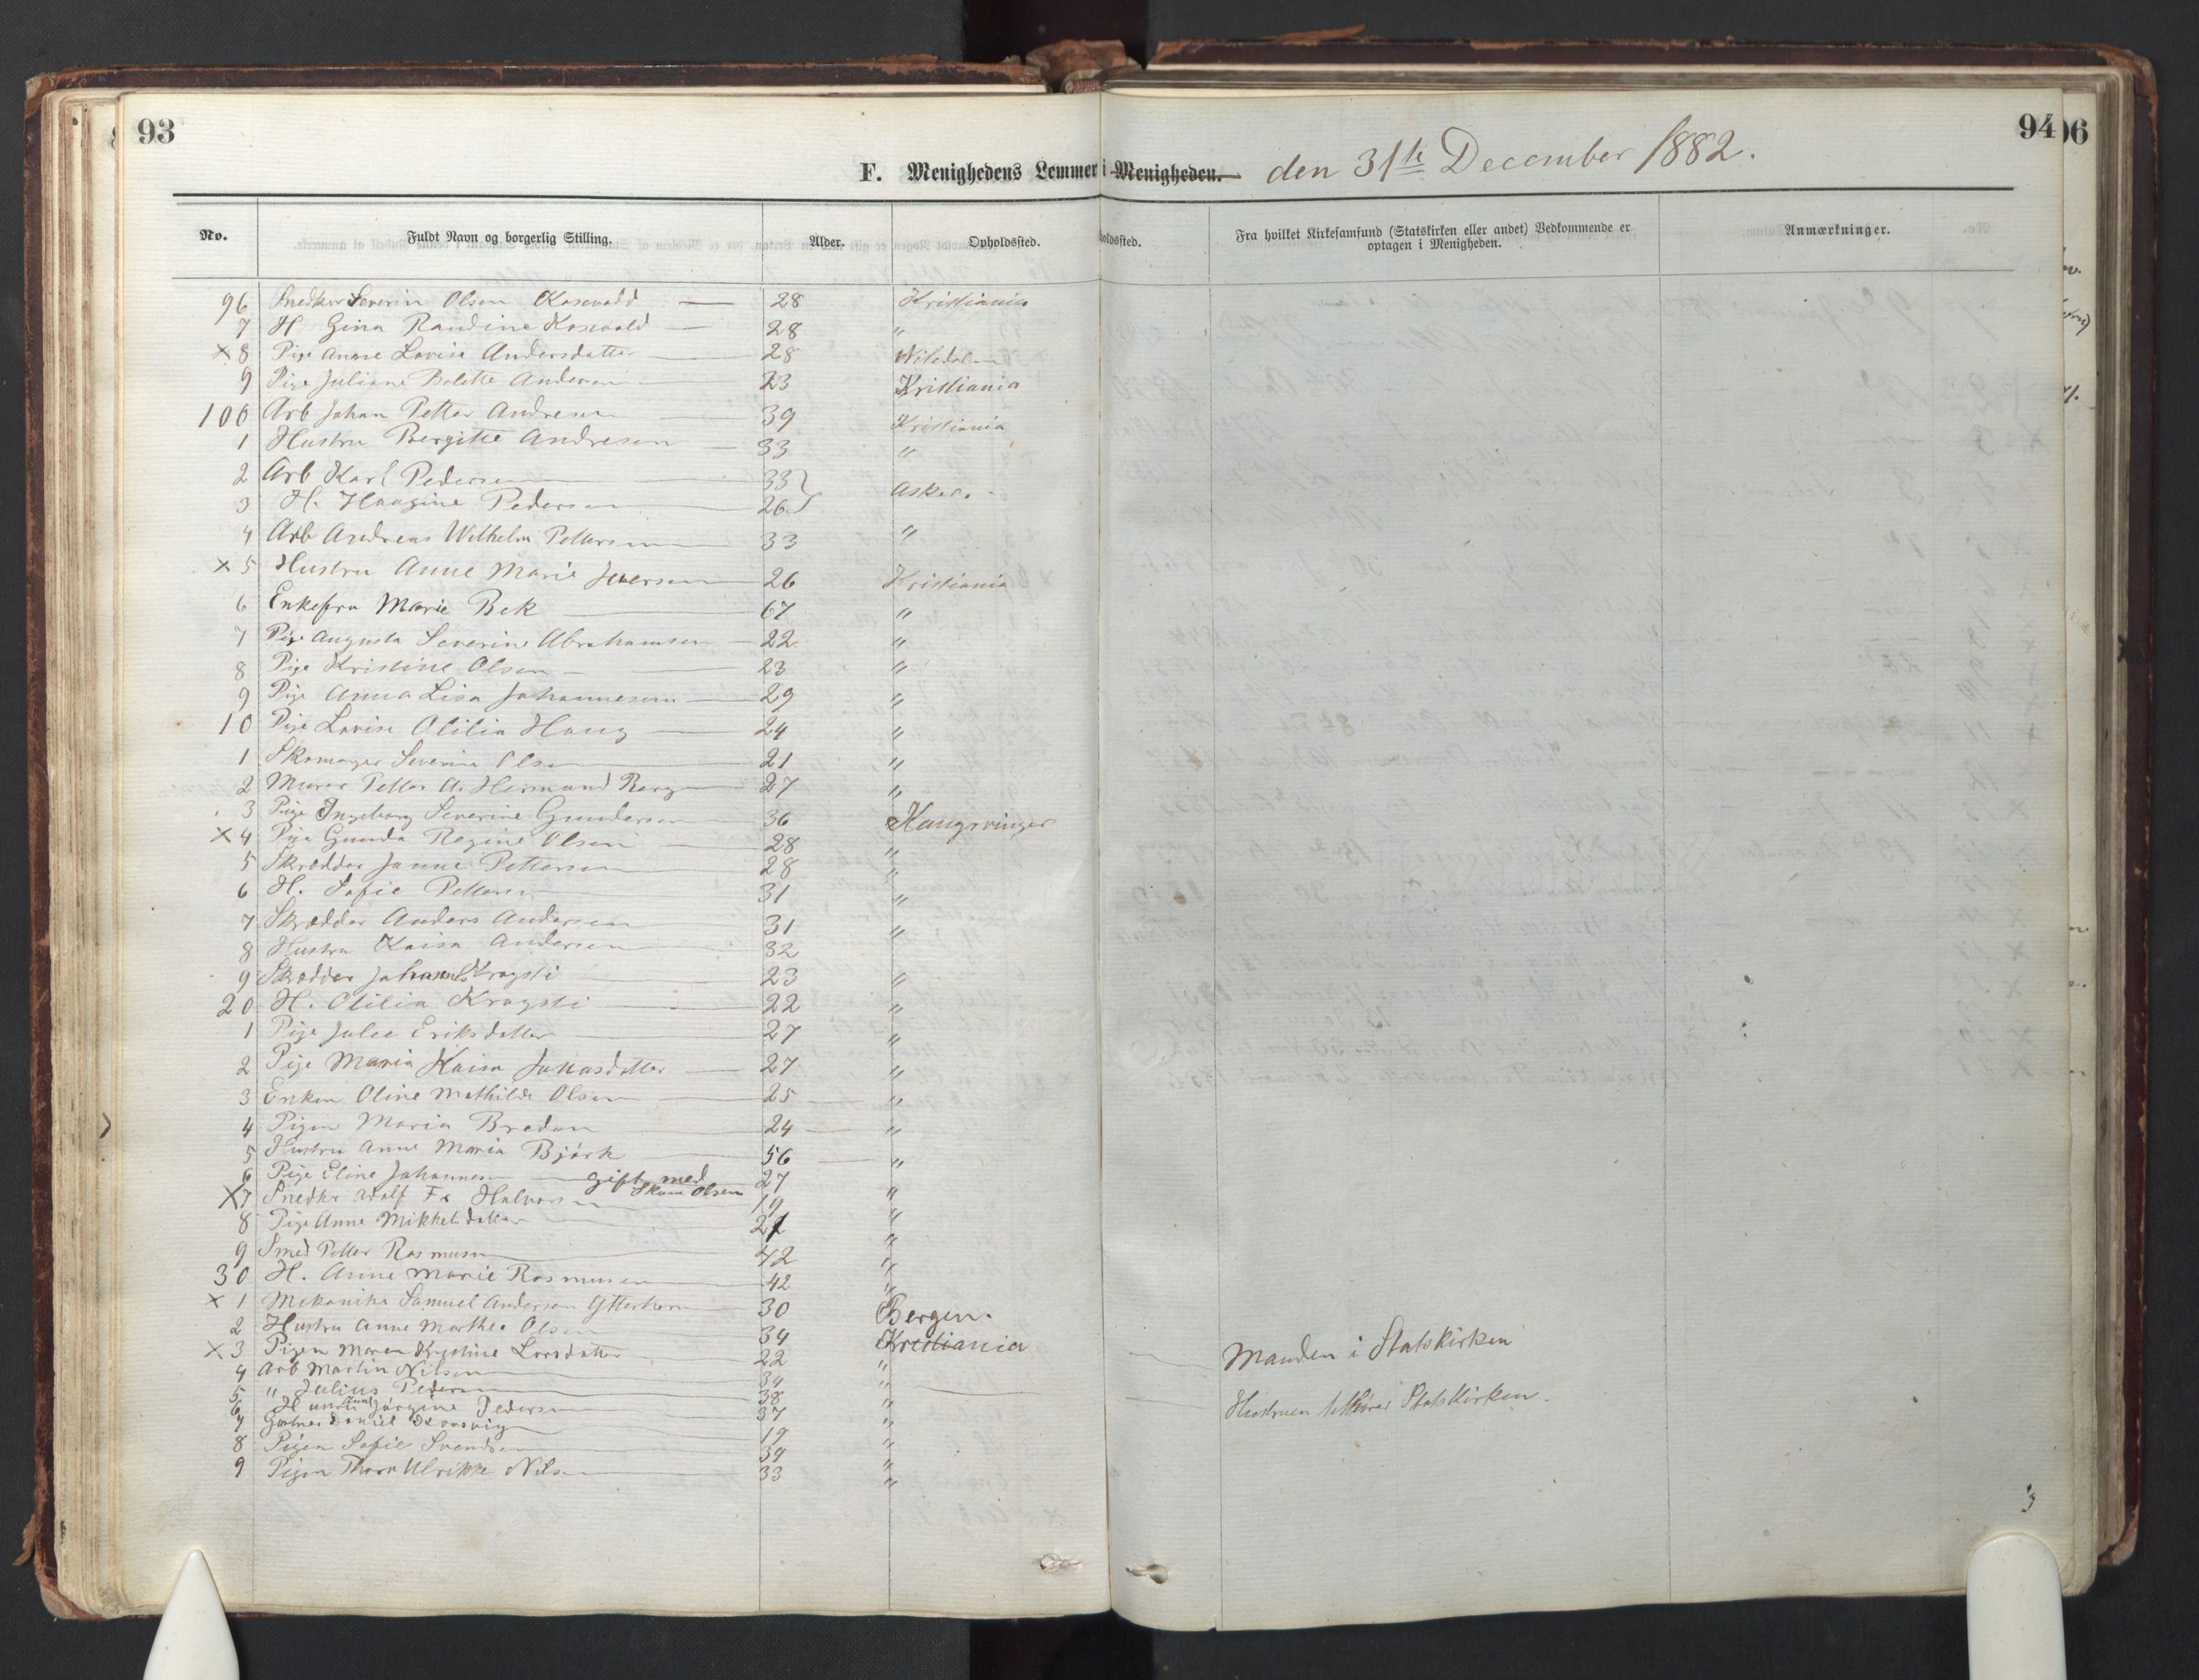 93
94
96
F. Menighedens Lemmer i Menigheden. den 31te December 1882.
No. Fuldt Navn og borgerlig Stilling. Alder. Opholdssted. Fra hvilket Kirkesamfund (Statskirken eller andet) Vedkommende er optagen i Menigheden. Anmærkninger.
96 Snedker Severin Olsen 28 Kristiania
7 H Gina Randine 28 "
× 8 Pige Anne Lovise Andersdatter 28
9 Pige Juliane Bolette Andersen 23 Kristiania
100 Arb Johan Petter Andresen 39 Kristiania
1 Hustru Bergitte Andresen 33 "
2 Arb Karl Pedersen 33 Asker.
3 H. Haagine Pedersen 26
4 Arb Andreas Wilhelm Pettersen 33 "
× 5 Hustru Anne Marie Iversen 26 Kristiania
6 Enkefru Marie Bek 67 "
7 Pige Augusta Severine Abrahamsen 22 "
8 Pige Kristine Olsen 23 "
9 Pige Anna Lisa Johannesen 29 "
10 Pige Lovise Otilia Haug 24 "
1 Skomager Severin Olsen 21 "
2 Murer Petter A. Hermand Berg 27 "
3 Pige Ingeborg Severine Gundersen 36 Kongsvinger
× 4 Pige Gunda Regine Olsen 28 "
5 Skrædder Janne Pettersen 28 "
6 H. Sofie Pettersen 31 "
7 Skrædder Anders Andersen 31 "
8 Hustru Kaisa Andersen 32
9 Skrædder Johannes Kragsti 23 "
20 H. Otilia Kragsti 22 "
1 Pige Julie Eriksdatter 27 "
2 Pige Maria Kaisa Jakasdatter 27 "
3 Enken Oline Mathilde Olsen 25 "
4 Pigen Maria Bredan 24 "
5 Hustru Anne Maria Björk 56 "
6 Pige Eline Johannesen gift med Skom Olsen 27 "
× 7 Snedkr Adolf Fr Halvorsen 19 "
8 Pige Anne Mikkelsdatter 21 "
9 Smed Petter Rasmusen 42 "
30 H. Anne Marie Rasmusen 42 "
× 1 Mekaniker Samuel Andersen Ytterhorn 30 Bergen.
2 Hustru Anne Marthea Olsen 34 Kristiania Manden i Statskirken
× 3 Pigen Maren Kristine Larsdatter 22 "
4 Arb Martin Nilsen 34 "
5 " Julius Pedersen 38 Hustruen tilhører Statskirken.
6 Hustru Anne Jörgine Pedersen 37 "
7 Gartner Daniel 19 "
8 Pigen Sofie Svendsen 34 "
9 Pigen Thora Ulrikke Nilsen 33 "